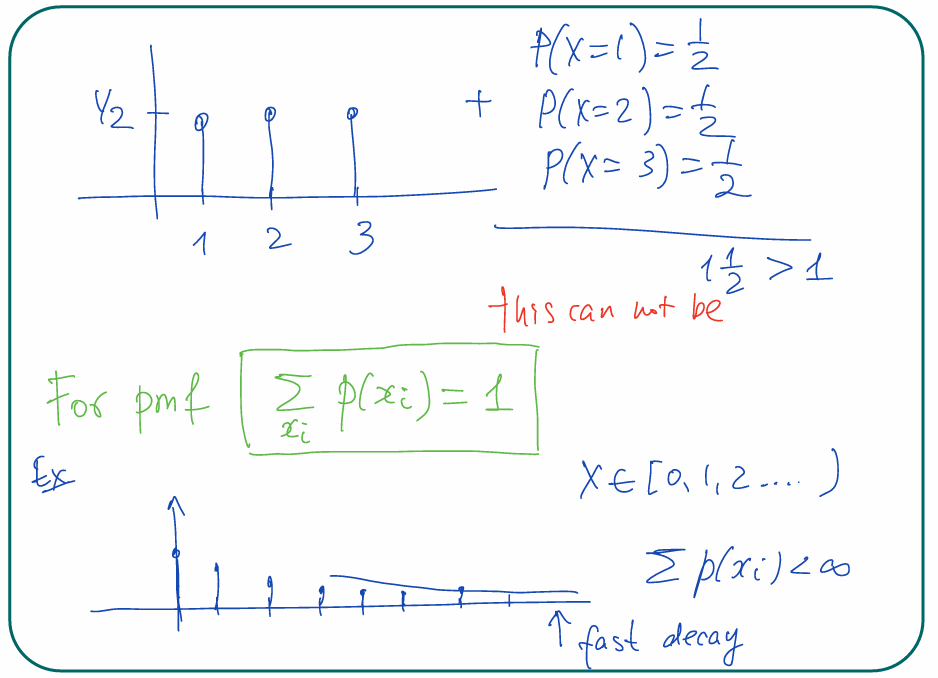 P(X=1)=1/2
1/2 + P(X=2)=1/2
P(X=3)=1/2
1 2 3
1 1/2 > 1
this can not be
For pmf ∑ p(xi) = 1
xi
Ex X ∈ [0, 1, 2 .... )
∑ p(xi) < ∞
↑ fast decay